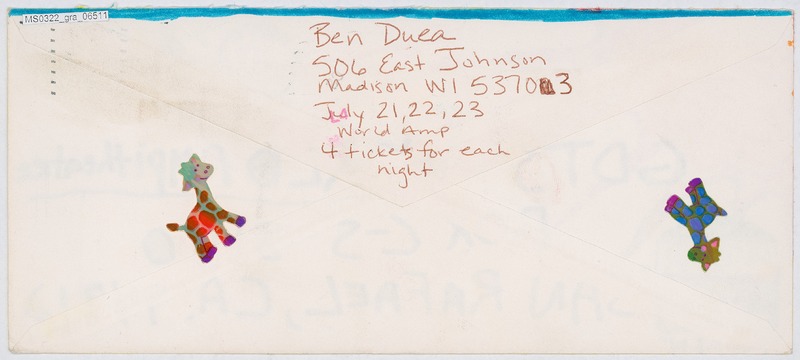 MS0322_gra_06511
Ben Duea
506 East Johnson
Madison WI 53703
July 21, 22, 23
World Amp
4 tickets for each
night